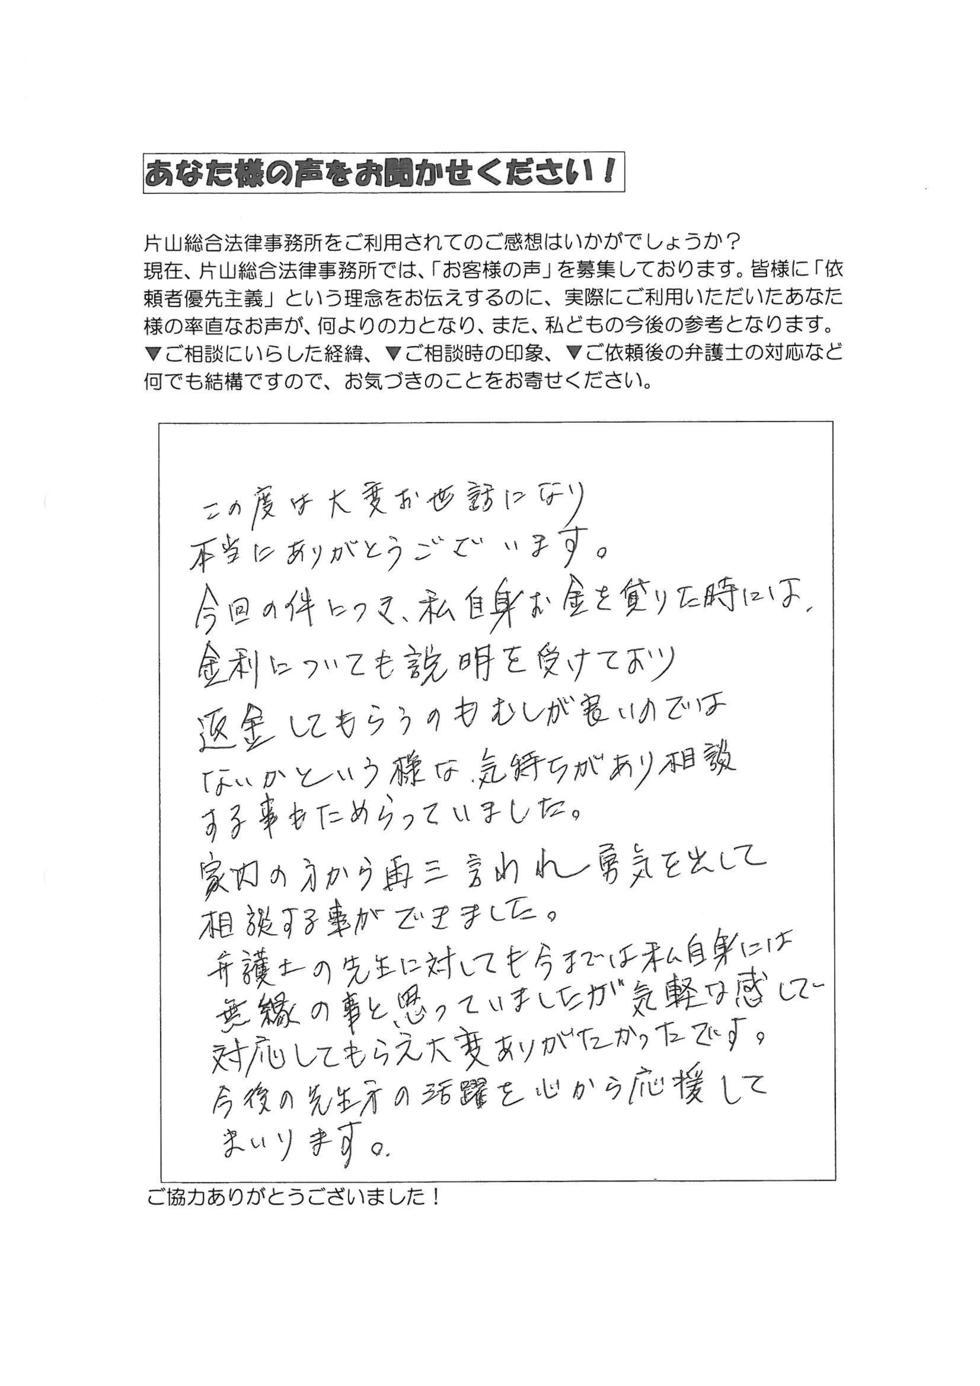 あなた様の声をお聞かせください！
片山総合法律事務所をご利用されてのご感想はいかがでしょうか？
現在、片山総合法律事務所では、「お客様の声」を募集しております。皆様に「依
頼者優先主義」という理念をお伝えするのに、実際にご利用いただいたあなた
様の率直なお声が、何よりの力となり、また、私どもの今後の参考となります。
▼ご相談にいらした経緯、▼ご相談時の印象、▼ご依頼後の弁護士の対応など
何でも結構ですので、お気づきのことをお寄せください。
この度は大変お世話になり
本当にありがとうございます。
今回の件につき、私自身お金を貸りた時には、
金利についても説明を受けており
返金してもらうのもむしが良いのでは
ないかという様な気持ちがあり相談
する事もためらっていました。
家内の方から再三言われ勇気を出して
相談する事ができました。
弁護士の先生に対しても今までは私自身には
無縁の事と思っていましたが気軽な感じで
対応してもらえ大変ありがたかったです。
今後の先生方の活躍を心から応援して
まいります。
ご協力ありがとうございました！